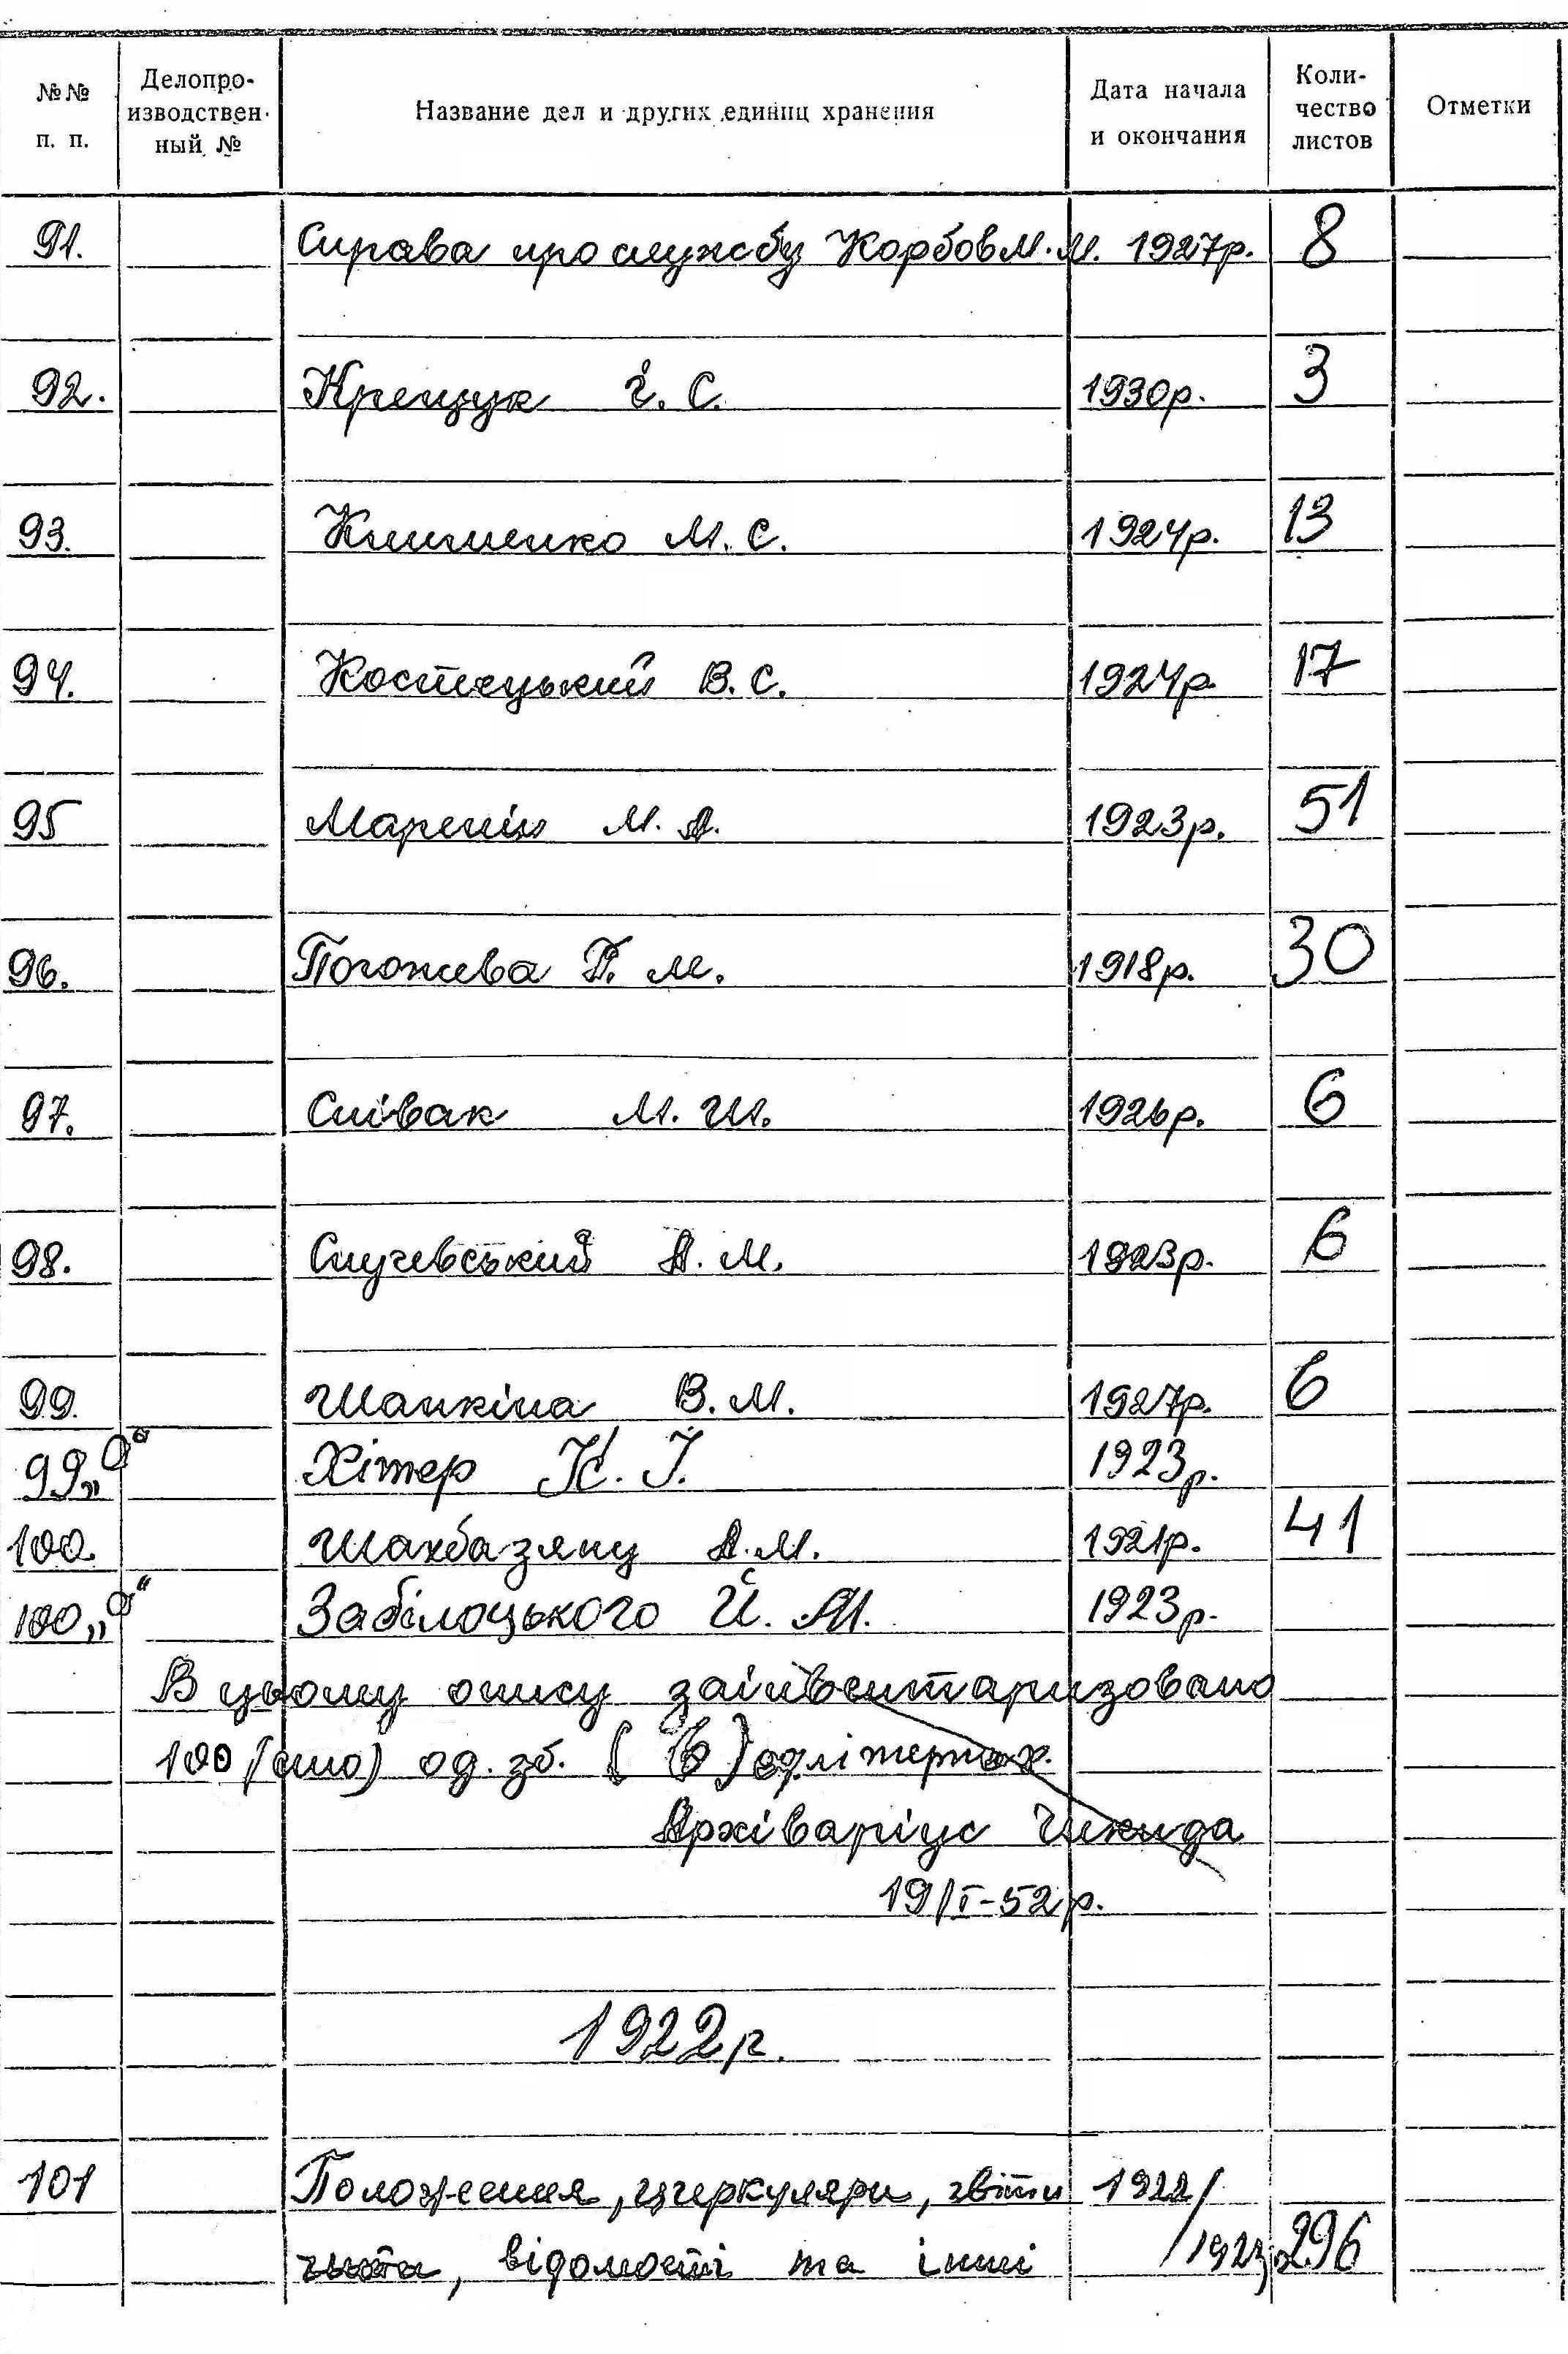 №№ п. п. Делопроизводственный № Название дел и других единиц хранения Дата начала и окончания Количество листов Отметки
91. Справа про службу Корбов М. М. 1927р. 8
92. Крещук І. С. 1930р. 3
93. Клименко М. С. 1924р. 13
94. Костецький В. С. 1924р. 17
95 Маренін М. А. 1923р. 51
96. Погожева М. 1918р. 30
97. Співак М. Ш. 1926р. 6
98. Случевський А. М. 1923р. 6
99. Шапкіна В. М. 1927р. 6
99„а“ Хітер К. І. 1923р.
100. Шахбазяну А. М. 1921р. 41
100„а“ Забілоцького Й. М. 1923р.
В цьому опису заінвентаризовано
100 (сто) од. зб. ( ) літерних.
Архіваріус Чикида
19/I-52р.
1922р.
101 Положення, циркуляри, звіти 1922/
відомості та інші /1923 296